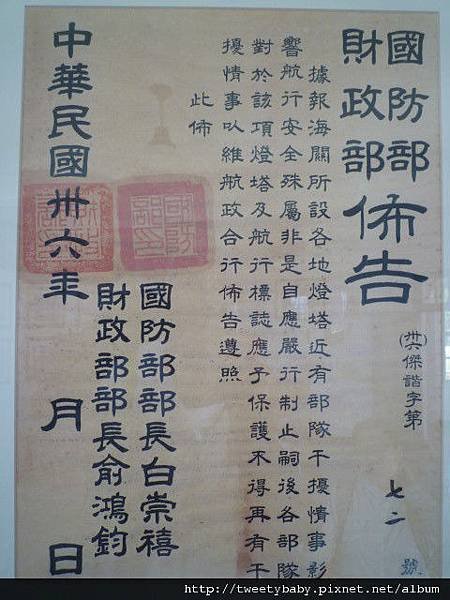 國防部
財政部
佈告
(卅六)傑諧字第 七二 號
據報海關所設各地燈塔近有部隊干擾情事影
響航行安全殊屬非是自應嚴行制止嗣後各部隊
對於該項燈塔及航行標誌應予保護不得再有干
擾情事以維航政合行佈告遵照
此佈
國防部部長白崇禧
財政部部長俞鴻鈞
中華民國卅六年 月 日
http://tweetybaby.pixnet.net/album